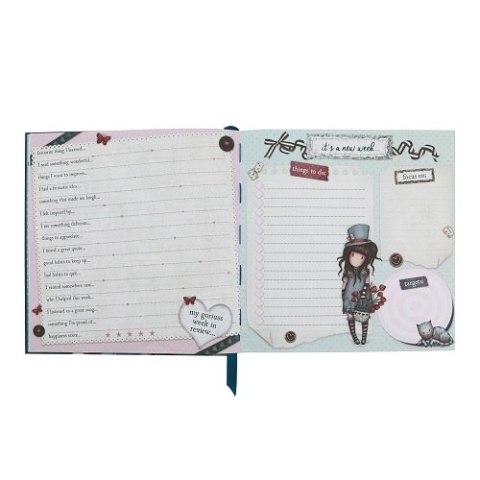 favourite thing I learned...
I read something wonderful...
things I want to improve...
I had a fantastic idea...
something that made me laugh...
I felt inspired by...
I ate something delicious...
things to appreciate...
I heard a great quote...
good habits to keep up...
bad habits to quit...
I visited somewhere new...
who I helped this week...
I listened to a great song...
something I'm proud of...
happiness score...
my gorjuss
week in
review...
it's a new week
things to do:
focus on:
targets: